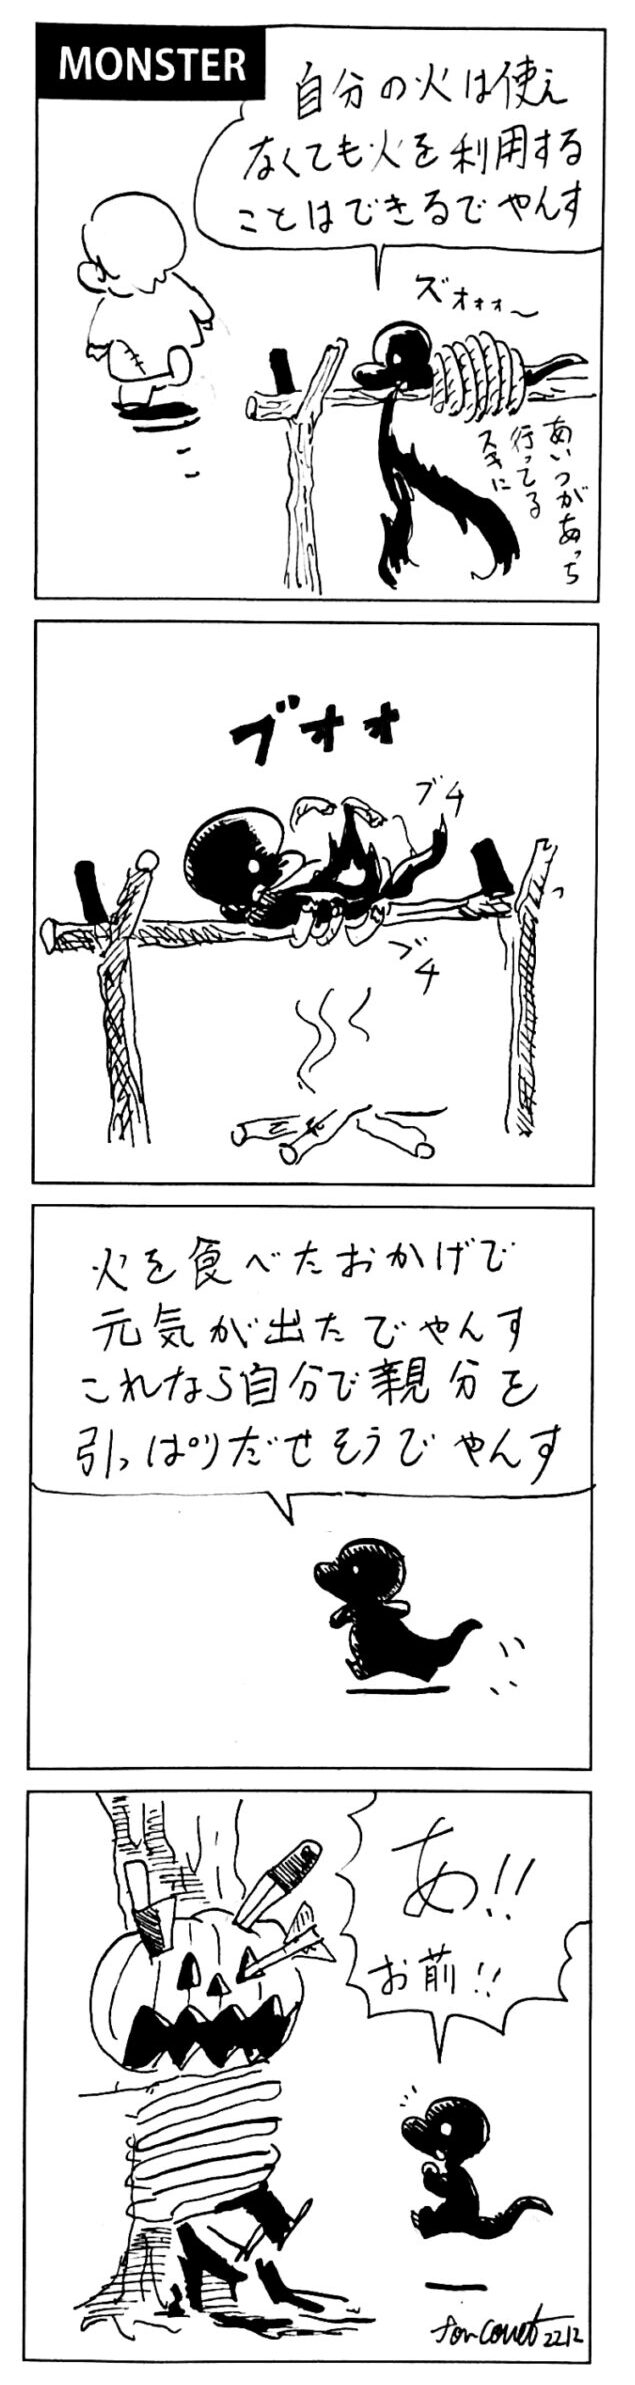 MONSTER
自分の火は使え
なくても火を利用する
ことはできるでやんす
ズオォォ〜
あいつがあっち
行ってる
スキに
ブオオ
ブチ
ブチ
火を食べたおかげで
元気が出たでやんす
これなら自分で親分を
引っぱりだせそうでやんす
あ!!
お前!!
2212